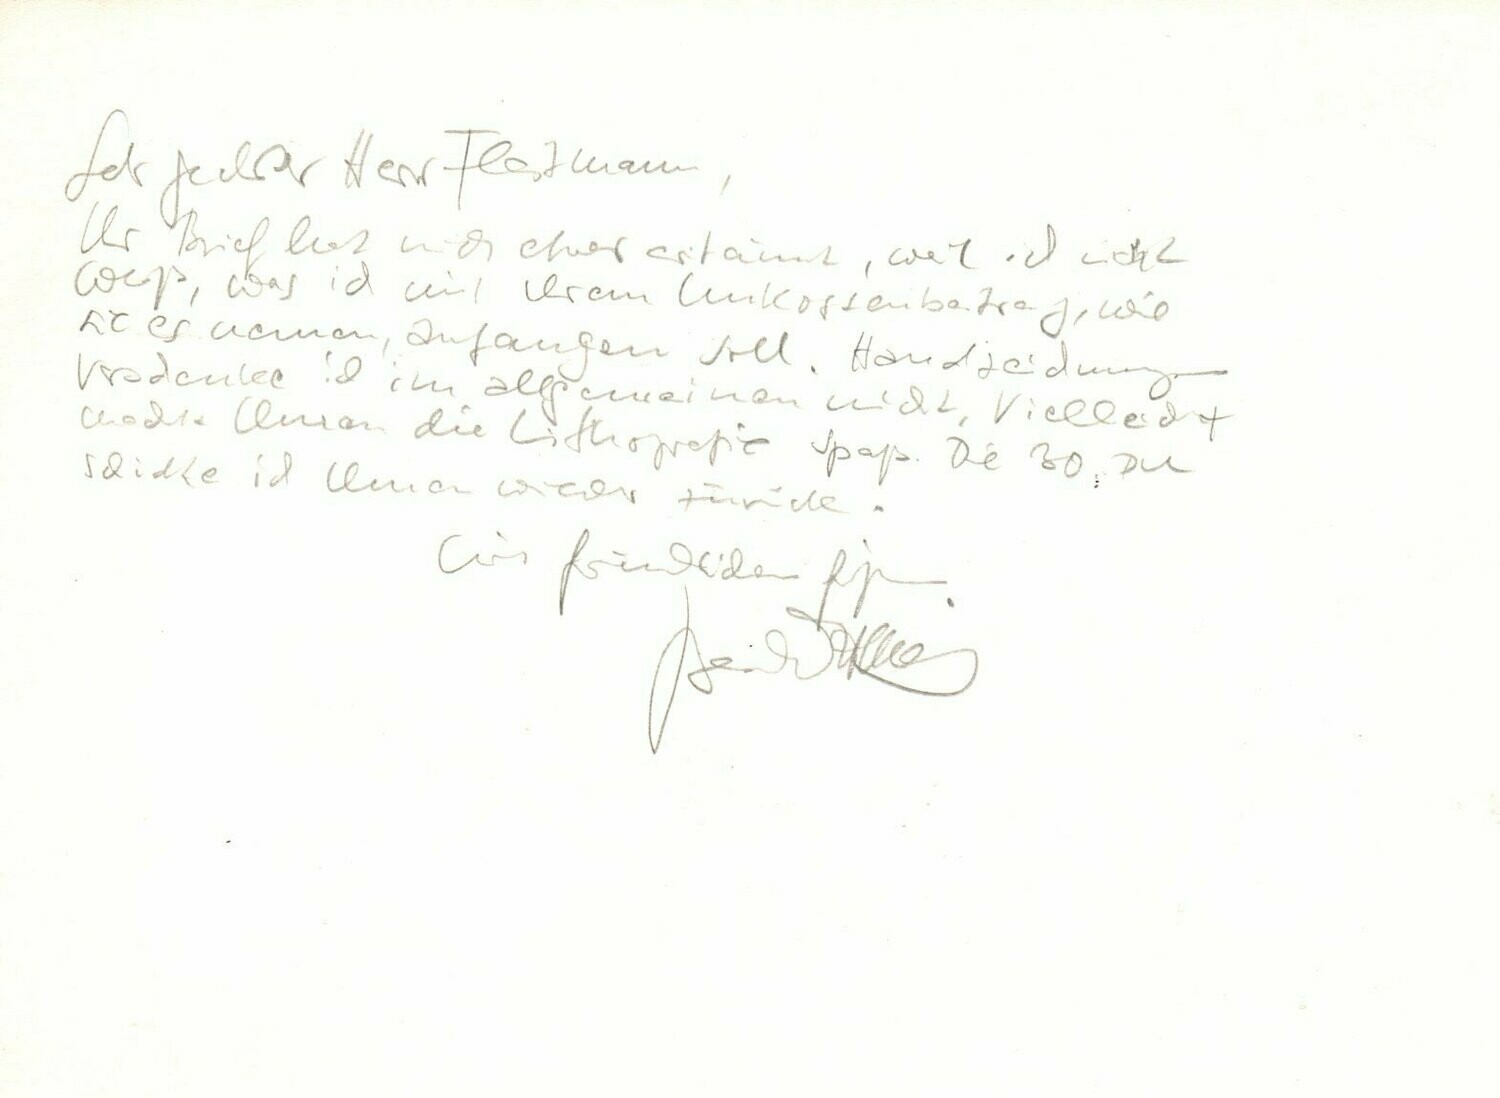 Sehr geehrter Herr Fleszmann,
Ihr Brief hat mich etwas erstaunt, weil ich nicht
weiß, was ich mit Ihrem Unkostenbeitrag, wie
Sie es nennen, anfangen soll. Handzeichnungen
verschenke ich im allgemeinen nicht, Vielleicht
macht Ihnen die Lithografie Spaß. Die 30. DM
schicke ich Ihnen wieder zurück.
Mit freundlichen Grüßen